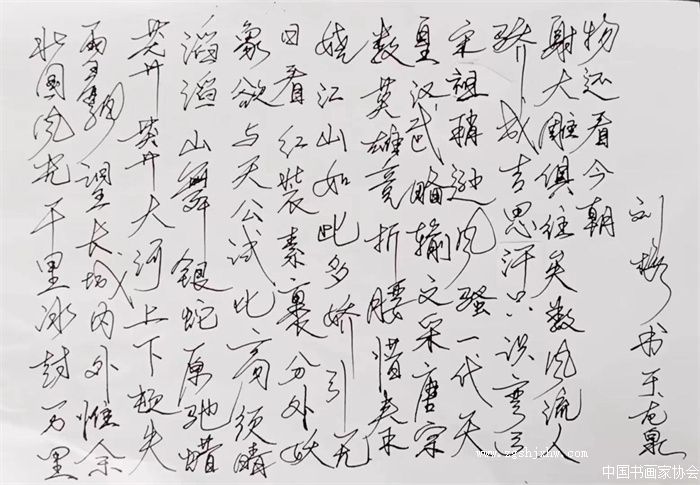 北国风光千里冰封万里
雪飘望长城内外惟余
莽莽大河上下顿失
滔滔山舞银蛇原驰蜡
象欲与天公试比高须晴
日看红装素裹分外妖
娆江山如此多娇引无
数英雄竞折腰惜秦
皇汉武略输文采唐宗
宋祖稍逊风骚一代天
骄成吉思汗只识弯弓
射大雕俱往矣数风流人
物还看今朝
刘 书于龙泉
www.zgshjxhw.com
中国书画家协会